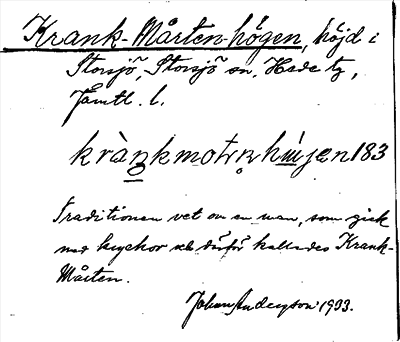 Krank-Mårten-högen, höjd i
Storsjö, Storsjö sn, Hede tg,
Jämtl. l.
kràn̥kmotn̥hújen 183
Traditionen vet om en man, som gick
med kryckor och därför kallades Krank-
Mårten.
Johan Anderson 1933.